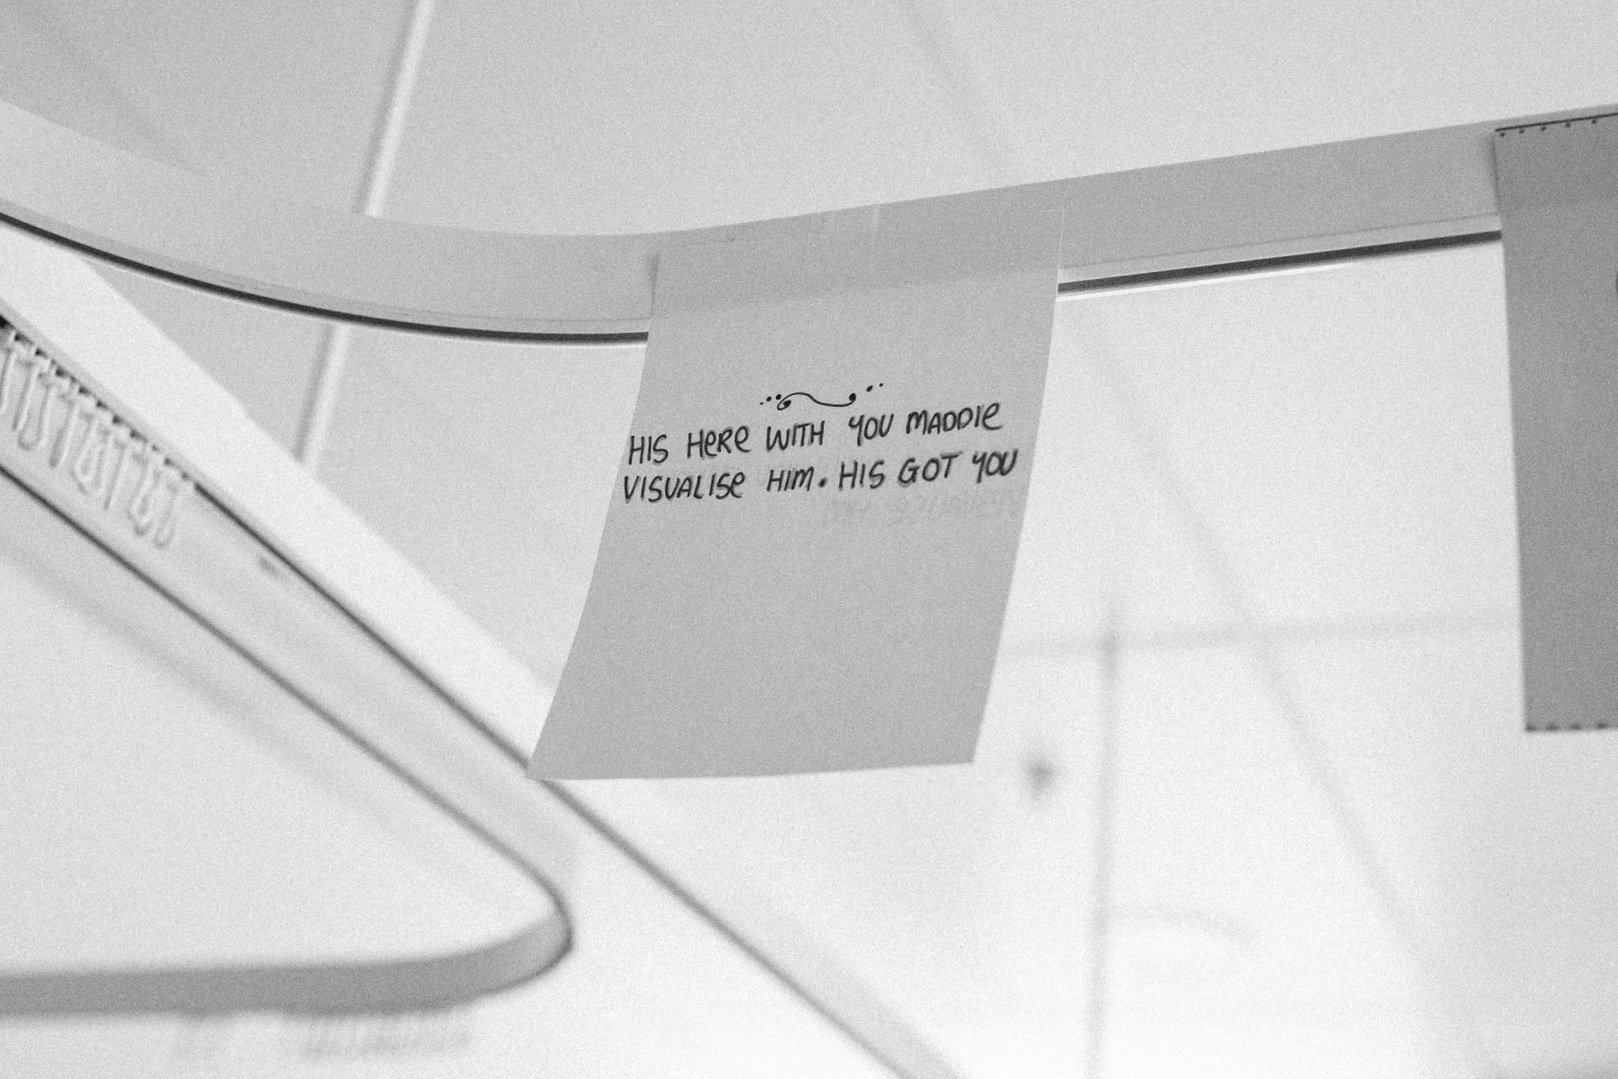 HIS HERE WITH YOU MADDIE
VISUALISE HIM. HIS GOT YOU